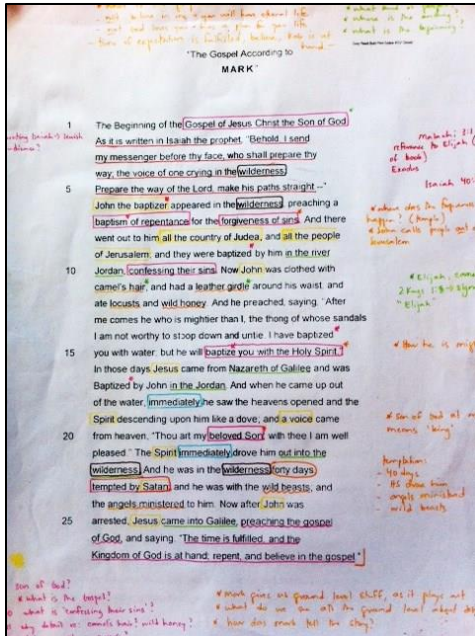 "The Gospel According to
MARK"
1 The Beginning of the Gospel of Jesus Christ the Son of God
As it is written in Isaiah the prophet, "Behold, I send
my messenger before thy face, who shall prepare thy
way; the voice of one crying in the wilderness:
5 Prepare the way of the Lord, make his paths straight --"
John the baptizer appeared in the wilderness, preaching a
baptism of repentance for the forgiveness of sins. And there
went out to him all the country of Judea, and all the people
of Jerusalem; and they were baptized by him in the river
10 Jordan, confessing their sins. Now John was clothed with
camel's hair, and had a leather girdle around his waist, and
ate locusts and wild honey. And he preached, saying, "After
me comes he who is mightier than I, the thong of whose sandals
I am not worthy to stoop down and untie. I have baptized
15 you with water; but he will baptize you with the Holy Spirit."
In those days Jesus came from Nazareth of Galilee and was
Baptized by John in the Jordan. And when he came up out
of the water, immediately he saw the heavens opened and the
Spirit descending upon him like a dove; and a voice came
20 from heaven, "Thou art my beloved Son; with thee I am well
pleased." The Spirit immediately drove him out into the
wilderness. And he was in the wilderness forty days
tempted by Satan; and he was with the wild beasts; and
the angels ministered to him. Now after John was
25 arrested, Jesus came into Galilee, preaching the gospel
of God, and saying, "The time is fulfilled, and the
Kingdom of God is at hand; repent, and believe in the gospel."
Malachi 3:1
reference to Elijah
of book)
Exodus
Isaiah 40:
happen? (temple)
John calls people out
Jerusalem
2 Kings 1:8
"Elijah"
means 'king'
temptation:
- 40 days
- HS drove him
- angels ministered
- wild beasts
son of God?
* what is the gospel?
what is 'confessing their sins'?
why detail on camels hair? wild honey?
* mark gives us ground level stuff, as it plays out
* how does mark tell the story?